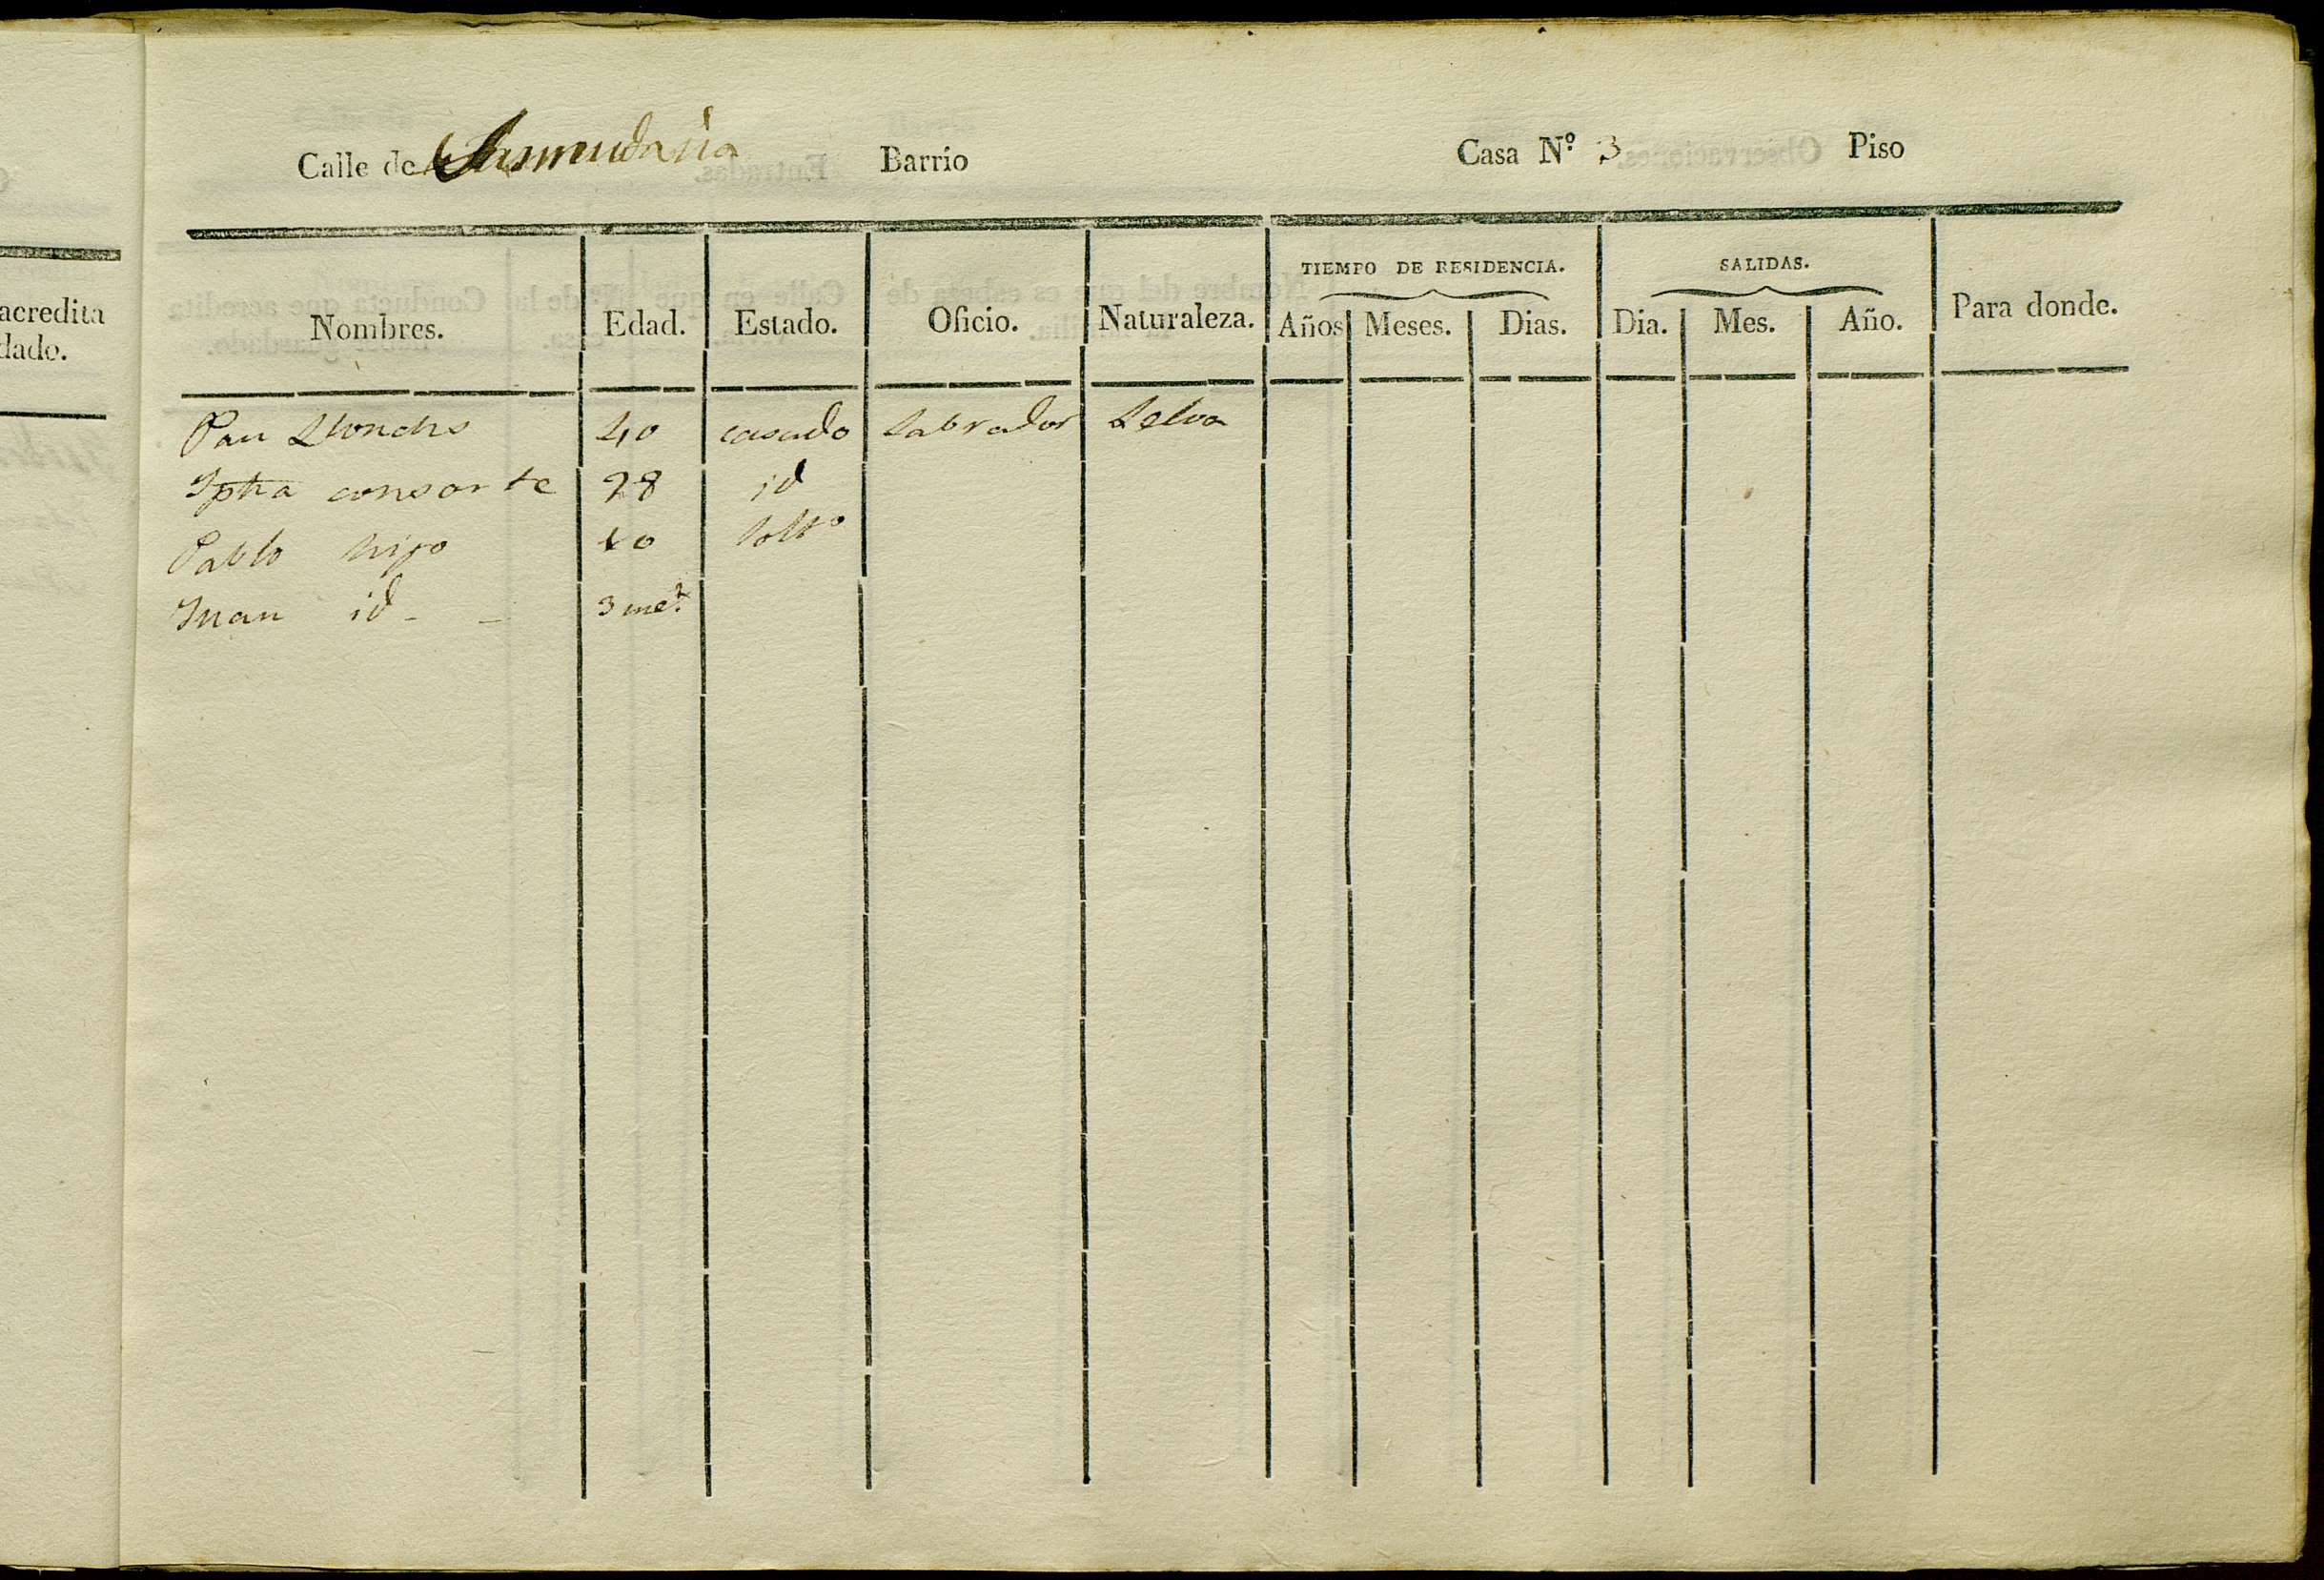 acredita
dado.
Calle de Barrio Casa Nº 3 Piso
TIEMPO DE RESIDENCIA. SALIDAS.
Nombres. Edad. Estado. Oficio. Naturaleza. Años Meses. Dias. Dia. Mes. Año. Para donde.
Pau 40 casado Labrador Selva
consorte 28 id
Pablo hijo 10 soltº
Juan id 3 mes